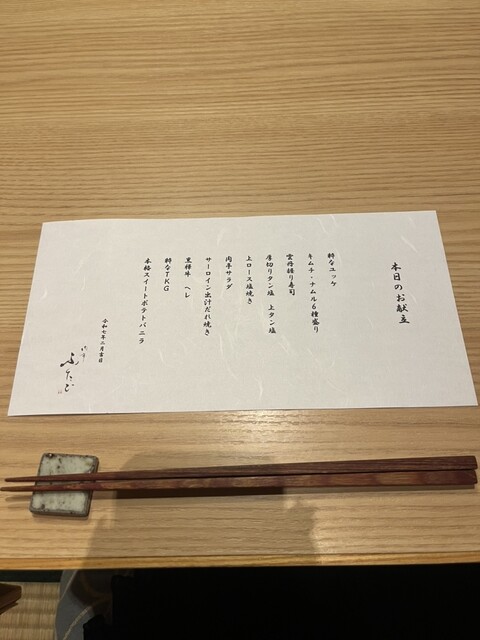 本日のお献立
粋なユッケ
キムチ・ナムル6種盛り
雲丹握り寿司
厚切りタン塩　上タン塩
上ロース塩焼き
肉寺サラダ
サーロイン出汁だれ焼き
黒樺牛　ヘレ
粋なTKG
本格スイートポテトバニラ
令和七年二月吉日
ふたご